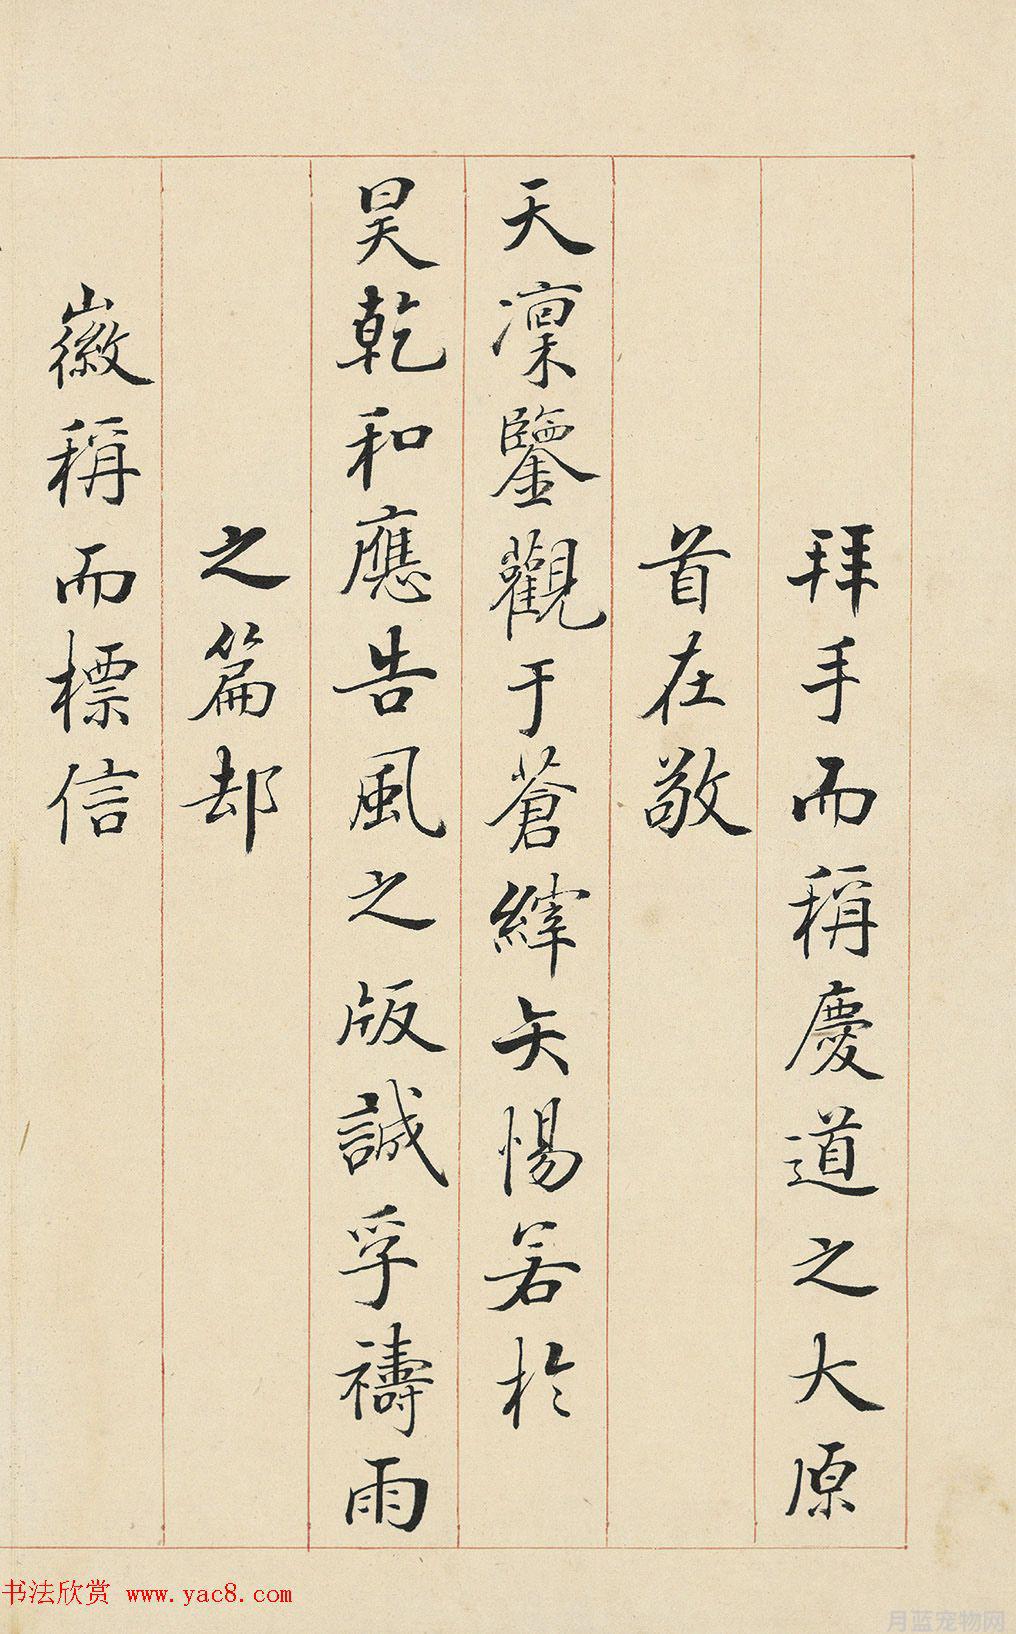 拜手而稱慶道之大原
首在敬
天凜鑒觀于蒼縡矢惕若於
昊乾和應告風之版誠孚禱雨
之篇却
徽稱而標信
书法欣赏 www.yac8.com
月蓝宠物网